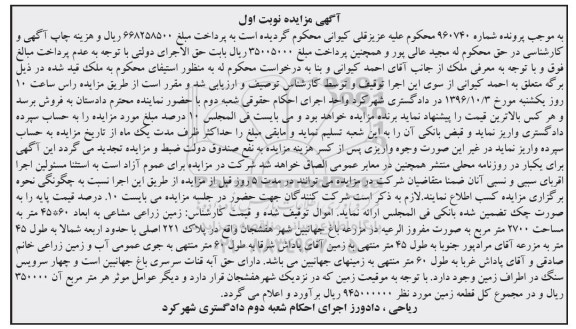 آگهی مزایده نوبت اول
به موجب پرونده شماره ۹۶۰۷۴۰ محکوم علیه عزیزقلی کیوانی محکوم گردیده است به پرداخت مبلغ ۶۶۸۲۵۸۵۰۰ ریال و هزینه چاپ آگهی و
کارشناسی در حق محکوم له مجید عالی پور و همچنین پرداخت مبلغ ۳۵۰۰۵۰۰۰ ریال بابت حق الاجرای دولتی با توجه به عدم پرداخت مبالغ
فوق و با توجه به معرفی ملک از جانب آقای احمد کیوانی و بنا به درخواست محکوم له به منظور استیفای محکوم به ملک قید شده در ذیل
برگه متعلق به احمد کیوانی از سوی این اجرا توقیف و توسط کارشناس توصیف و ارزیابی شد و مقرر است از طریق مزایده راس ساعت ۱۰
روز یکشنبه مورخ ۱۳۹۶/۱۰/۳ در دادگستری شهرکرد واحد اجرای احکام حقوقی شعبه دوم با حضور نماینده محترم دادستان به فروش برسد
و هر کس بالاترین قیمت را پیشنهاد نماید برنده مزایده خواهد بود و می بایست فی المجلس ۱۰ درصد مبلغ مورد مزایده را به حساب سپرده
دادگستری واریز نماید و فیض بانکی آن را به این شعبه تسلیم نماید و مابقی مبلغ را حداکثر ظرف مدت یک ماه از تاریخ مزایده به حساب
سپرده واریز نماید در غیر این صورت وجوه واریزی پس از کسر هزینه مزایده به نفع صندوق دولت ضبط و مزایده تجدید می گردد این آگهی
برای یکبار در روزنامه محلی منتشر همچنین در معابر عمومی الصاق خواهد شد شرکت در مزایده برای عموم آزاد است به استثنا مسئولین اجرا
اقربای سببی و نسبی آنان ضمنا متقاضیان شرکت در مزایده می توانند در مدت ۵ روز قبل از مزایده از طریق این اجرا نسبت به چگونگی نحوه
برگزاری مزایده کسب اطلاع نمایند.لازم به ذکر است شرکت کنندگان جهت حضور در جلسه مزایده می بایست ۱۰ درصد قیمت پایه را به
صورت چک تضمین شده بانکی فی المجلس ارائه نماید. اموال توقیف شده و قیمت کارشناس: زمین زراعی مشاعی به ابعاد ۶۰*۴۵ متر به
مساحت ۲۷۰۰ متر مربع به صورت مفروز الرعیه در مزرعه باغ جهانبین شهر هفشجان واقع در پلاک ۲۲۱ اصلی با حدود اربعه شمالا به طول ۴۵
متر به مزرعه آقای مرادپور جنوبا به طول ۴۵ متر منتهی به زمین آقای پاداش شرقا به طول ۶۰ متر منتهی به جوی عمومی آب و زمین زراعی خانم
صادقی و آقای پاداش غربا به طول ۶۰ متر منتهی به زمینهای جهانبین می باشد. دارای حق آبه قنات سرسری باغ جهانبین است و چهار سرویس
سنگ در اطراف زمین وجود دارد. با توجه به موقعیت زمین که در نزدیک شهرهفشجان قرار دارد و دیگر عوامل موثر هر متر مربع آن ۳۵۰۰۰۰
ریال و در مجموع کل قطعه زمین مورد نظر ۹۴۵۰۰۰۰۰۰ ریال برآورد و اعلام می گردد.
ریاحی ، دادورز اجرای احکام شعبه دوم دادگستری شهرکرد